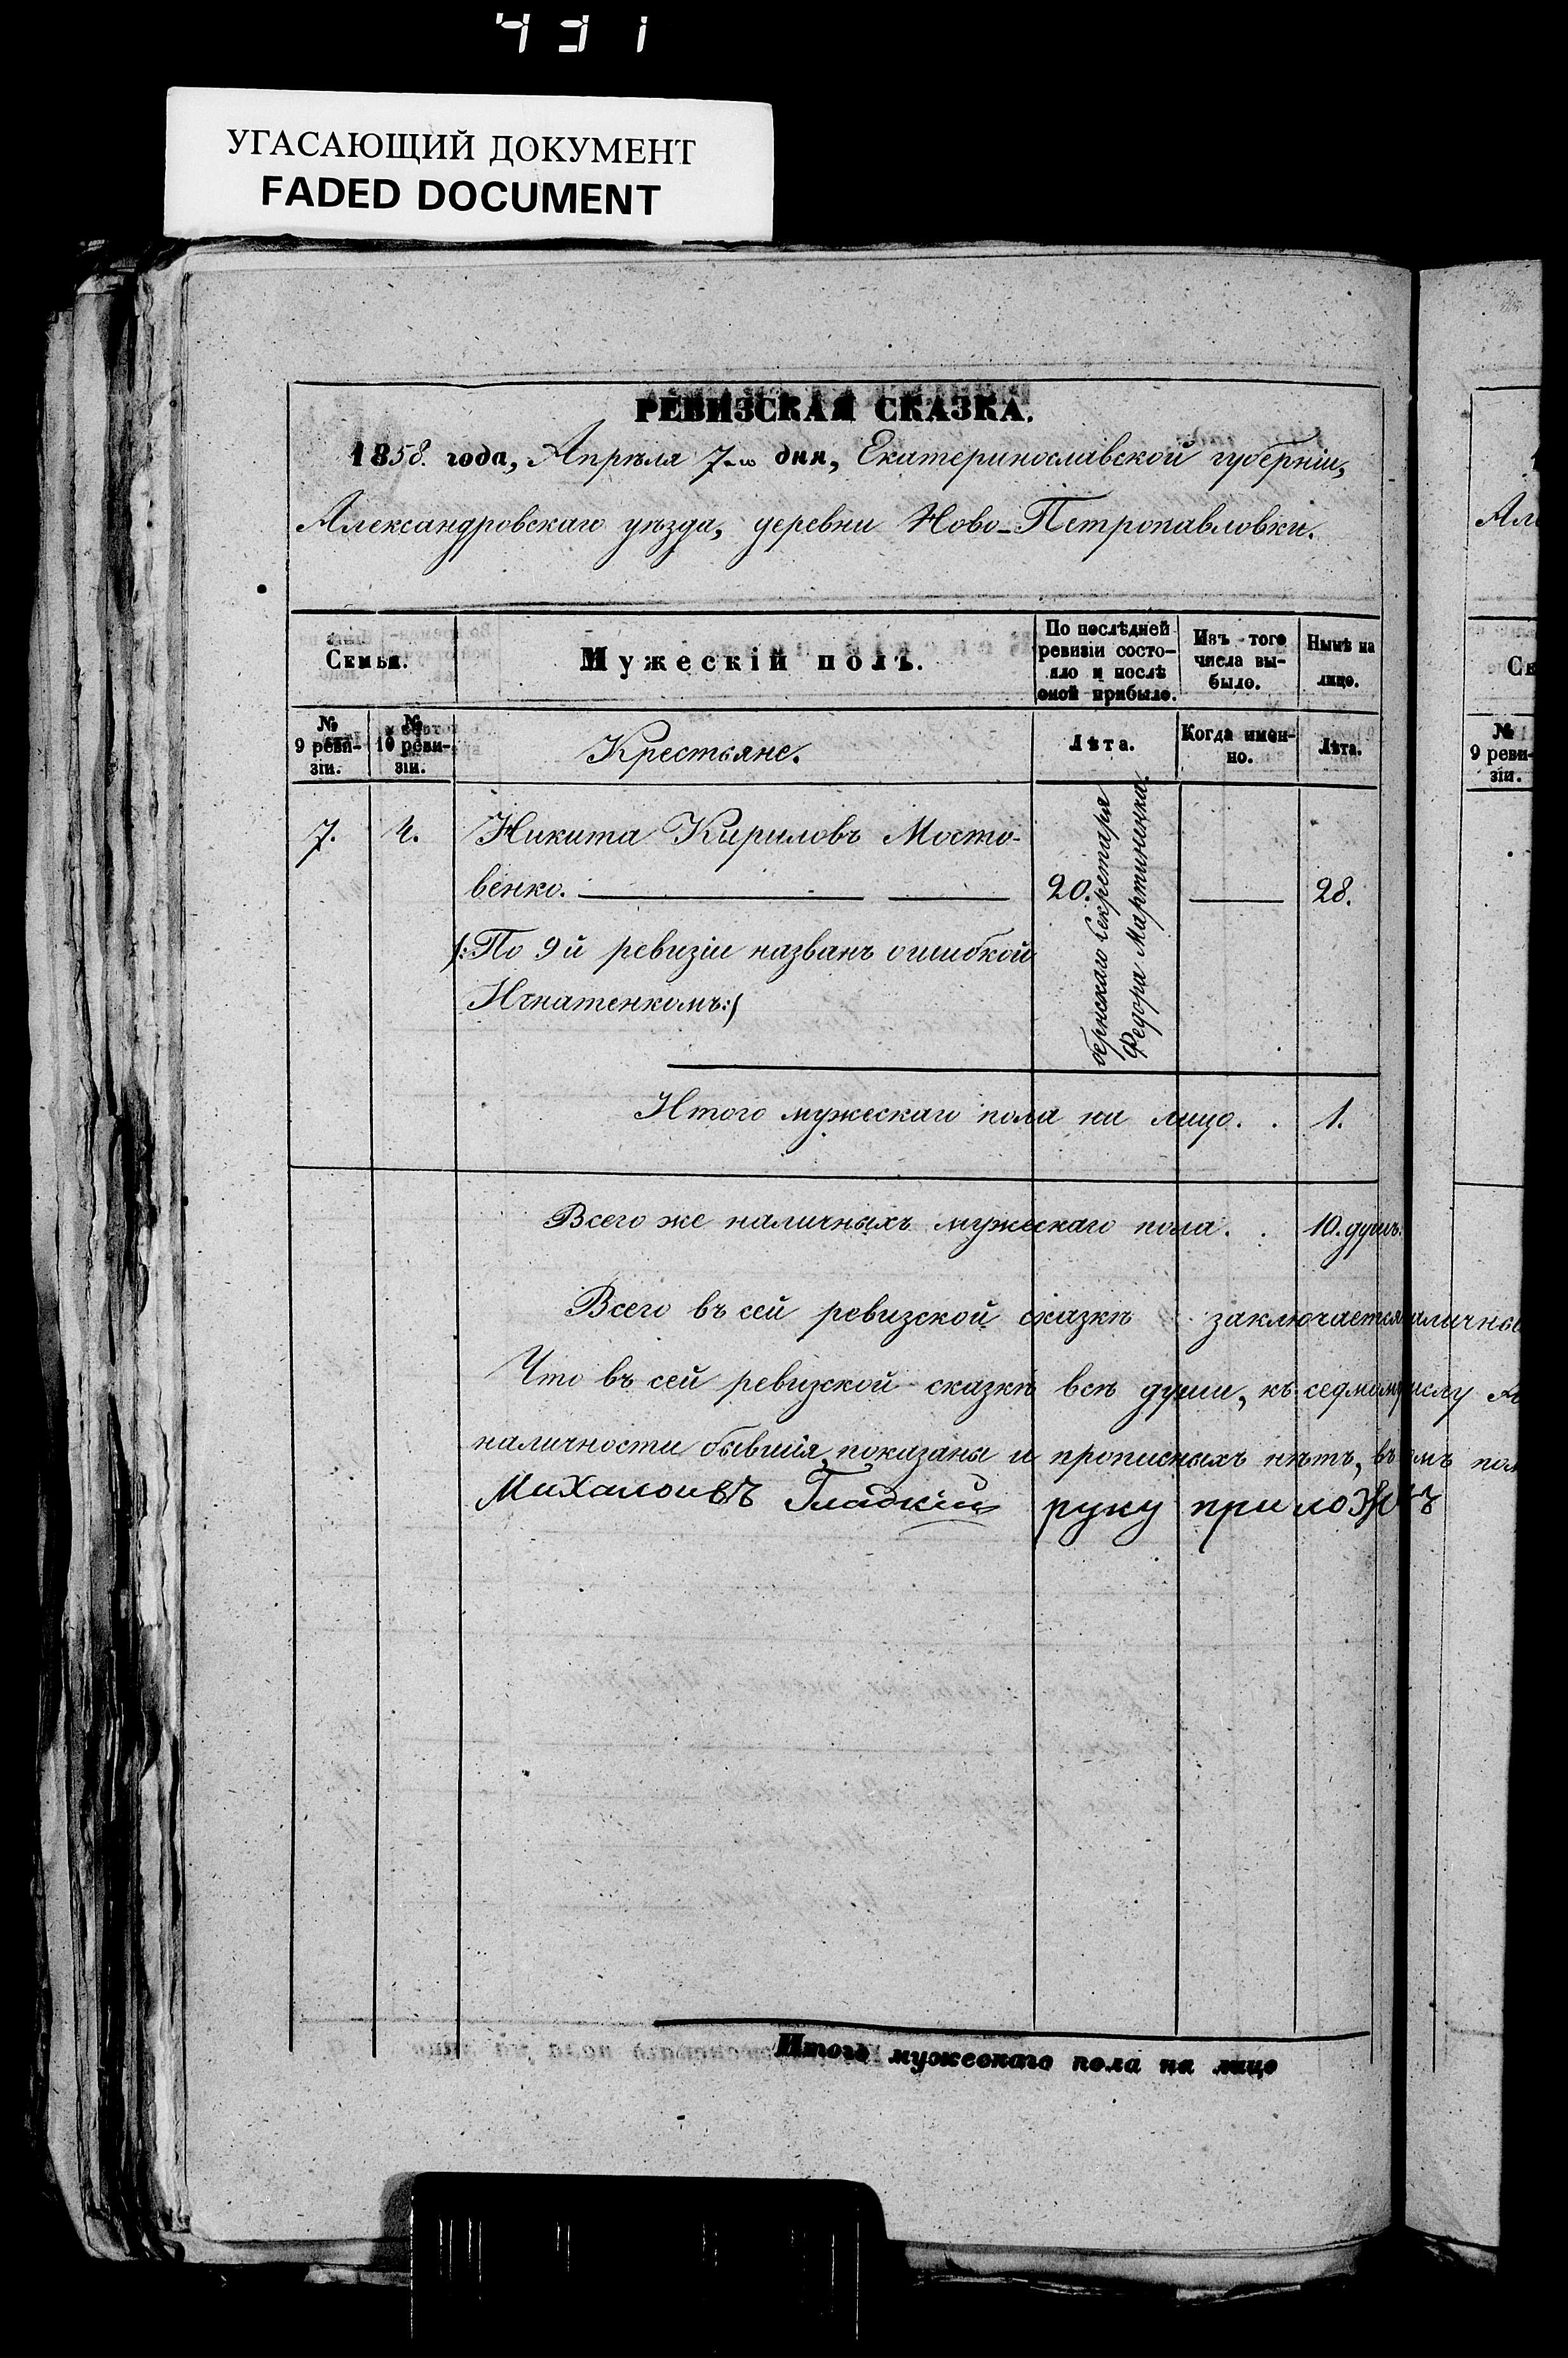 431
УГАСАЮЩИЙ ДОКУМЕНТ
FADED DOCUMENT
РЕВИЗСКАЯ СКАЗКА.
1858. года, Апрѣля 7-го дня, Екатеринославской губерніи,
Александровскаго уѣзда, деревни Ново-Петропавловки.
Семьи.
Мужескій полъ.
По послѣдней
ревизіи состо-
яло и послѣ
оной прибыло.
Изъ того
числа вы-
было.
Нынѣ на
лицо.
№
9 реви-
зіи.
№
10 реви-
зіи.
Крестьяне.
Лѣта.
Когда имен-
но.
Лѣта.
7. 4. Никита Кириловъ Мосто-
венко. 20. 28.
/:По 9й ревизіи названъ ошибкой
Игнатенкомъ:/
бернскаго Секретаря
Федора Мартинника.
Итого мужескаго пола на лицо. . 1.
Всего же наличныхъ мужескаго пола. . 10. душъ.
Всего въ сей ревизской сказкѣ заключается
Что въ сей ревизской сказкѣ всѣ души, къ
наличности бывшія, показаны и прописныхъ нѣтъ,
Михаловъ Гладкій руку приложилъ
Итого мужескаго пола на лицо
Ал
Се
№
9 реви-
зіи.